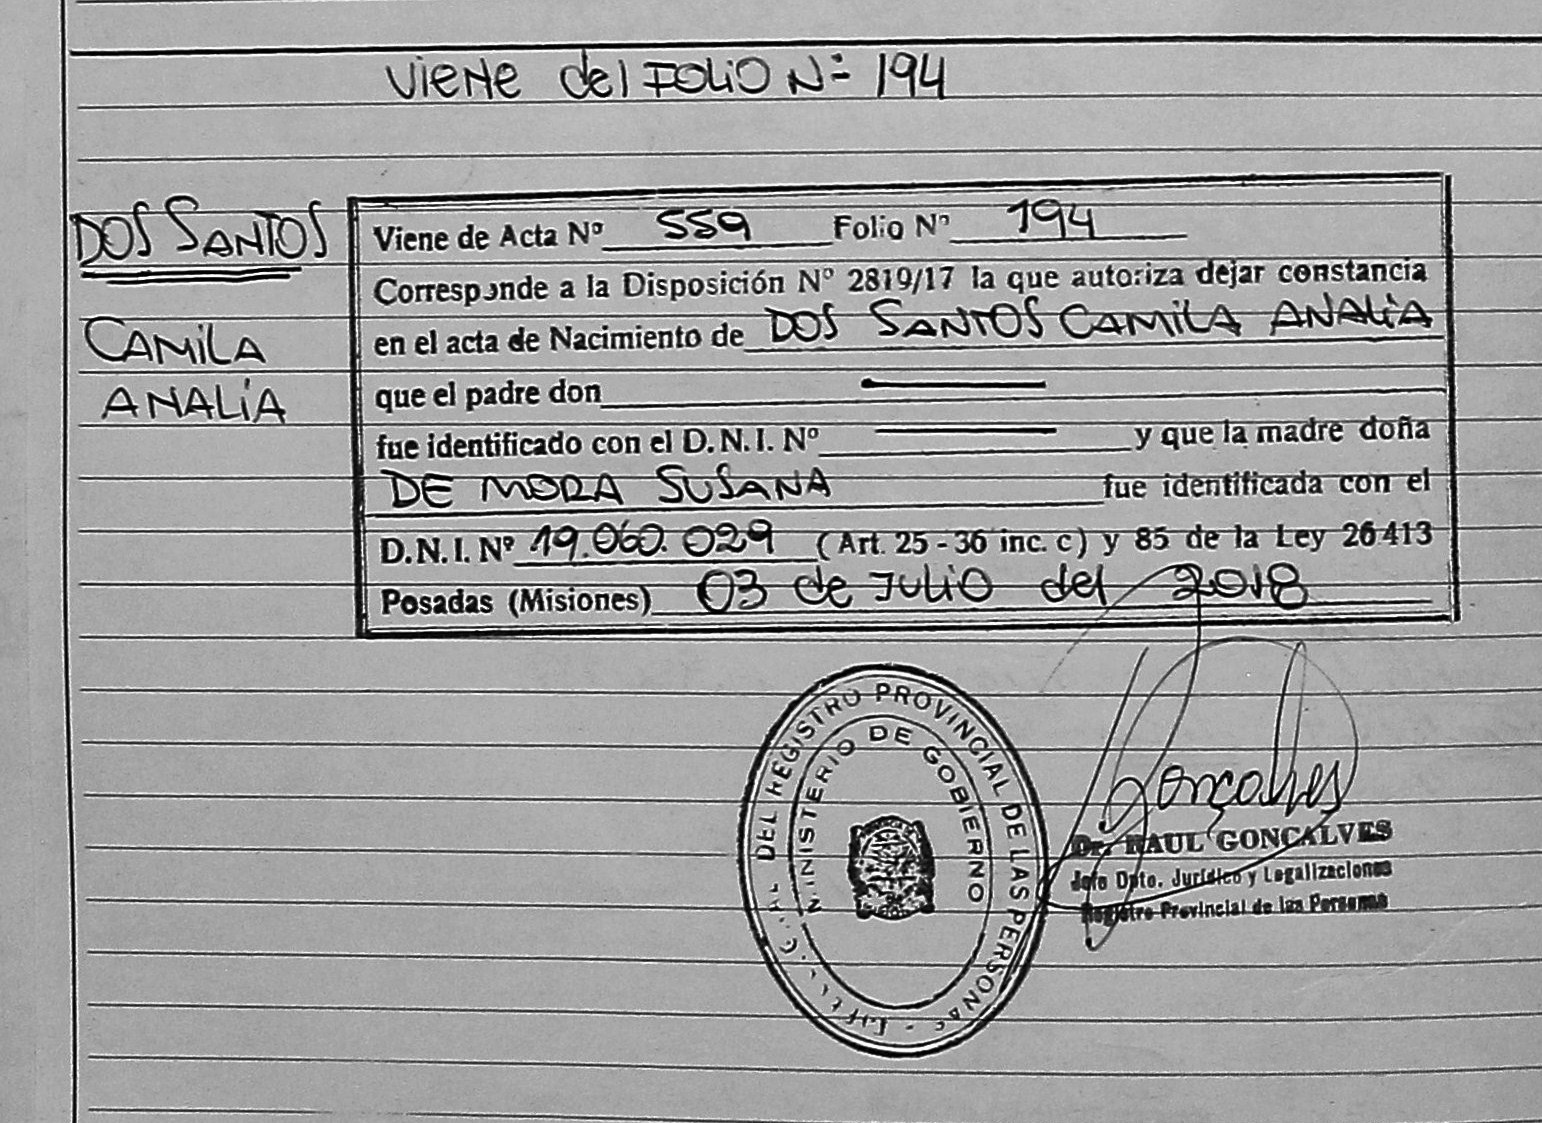 Viene del Folio Nº 194
DOS SANTOS
CAMILA
ANALÍA
Viene de Acta Nº 559 Folio Nº 194
Corresponde a la Disposición Nº 2819/17 la que autoriza dejar constancia
en el acta de Nacimiento de DOS SANTOS CAMILA ANALÍA
que el padre don —
fue identificado con el D.N.I. Nº — y que la madre doña
DE MORA SUSANA fue identificada con el
D.N.I. Nº 19.060.029 (Art. 25 - 36 inc. c) y 85 de la Ley 26413
Posadas (Misiones) 03 de Julio del 2018
DEL REGISTRO PROVINCIAL DE LAS PERSONAS
MINISTERIO DE GOBIERNO
Gonçalves
Dr. RAUL GONÇALVES
Jefe Dpto. Jurídico y Legalizaciones
Registro Provincial de las Personas